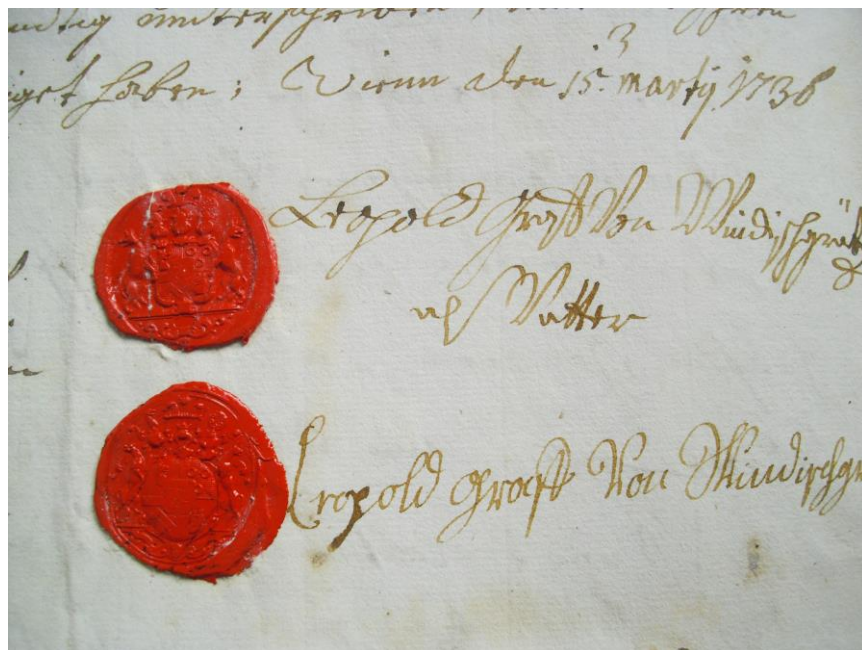 unterschrieben,
haben; Wienn den 15. martij 1736
Leopold Graff Von Windischgrätz
als Vatter
Leopold Graff Von Windischgr